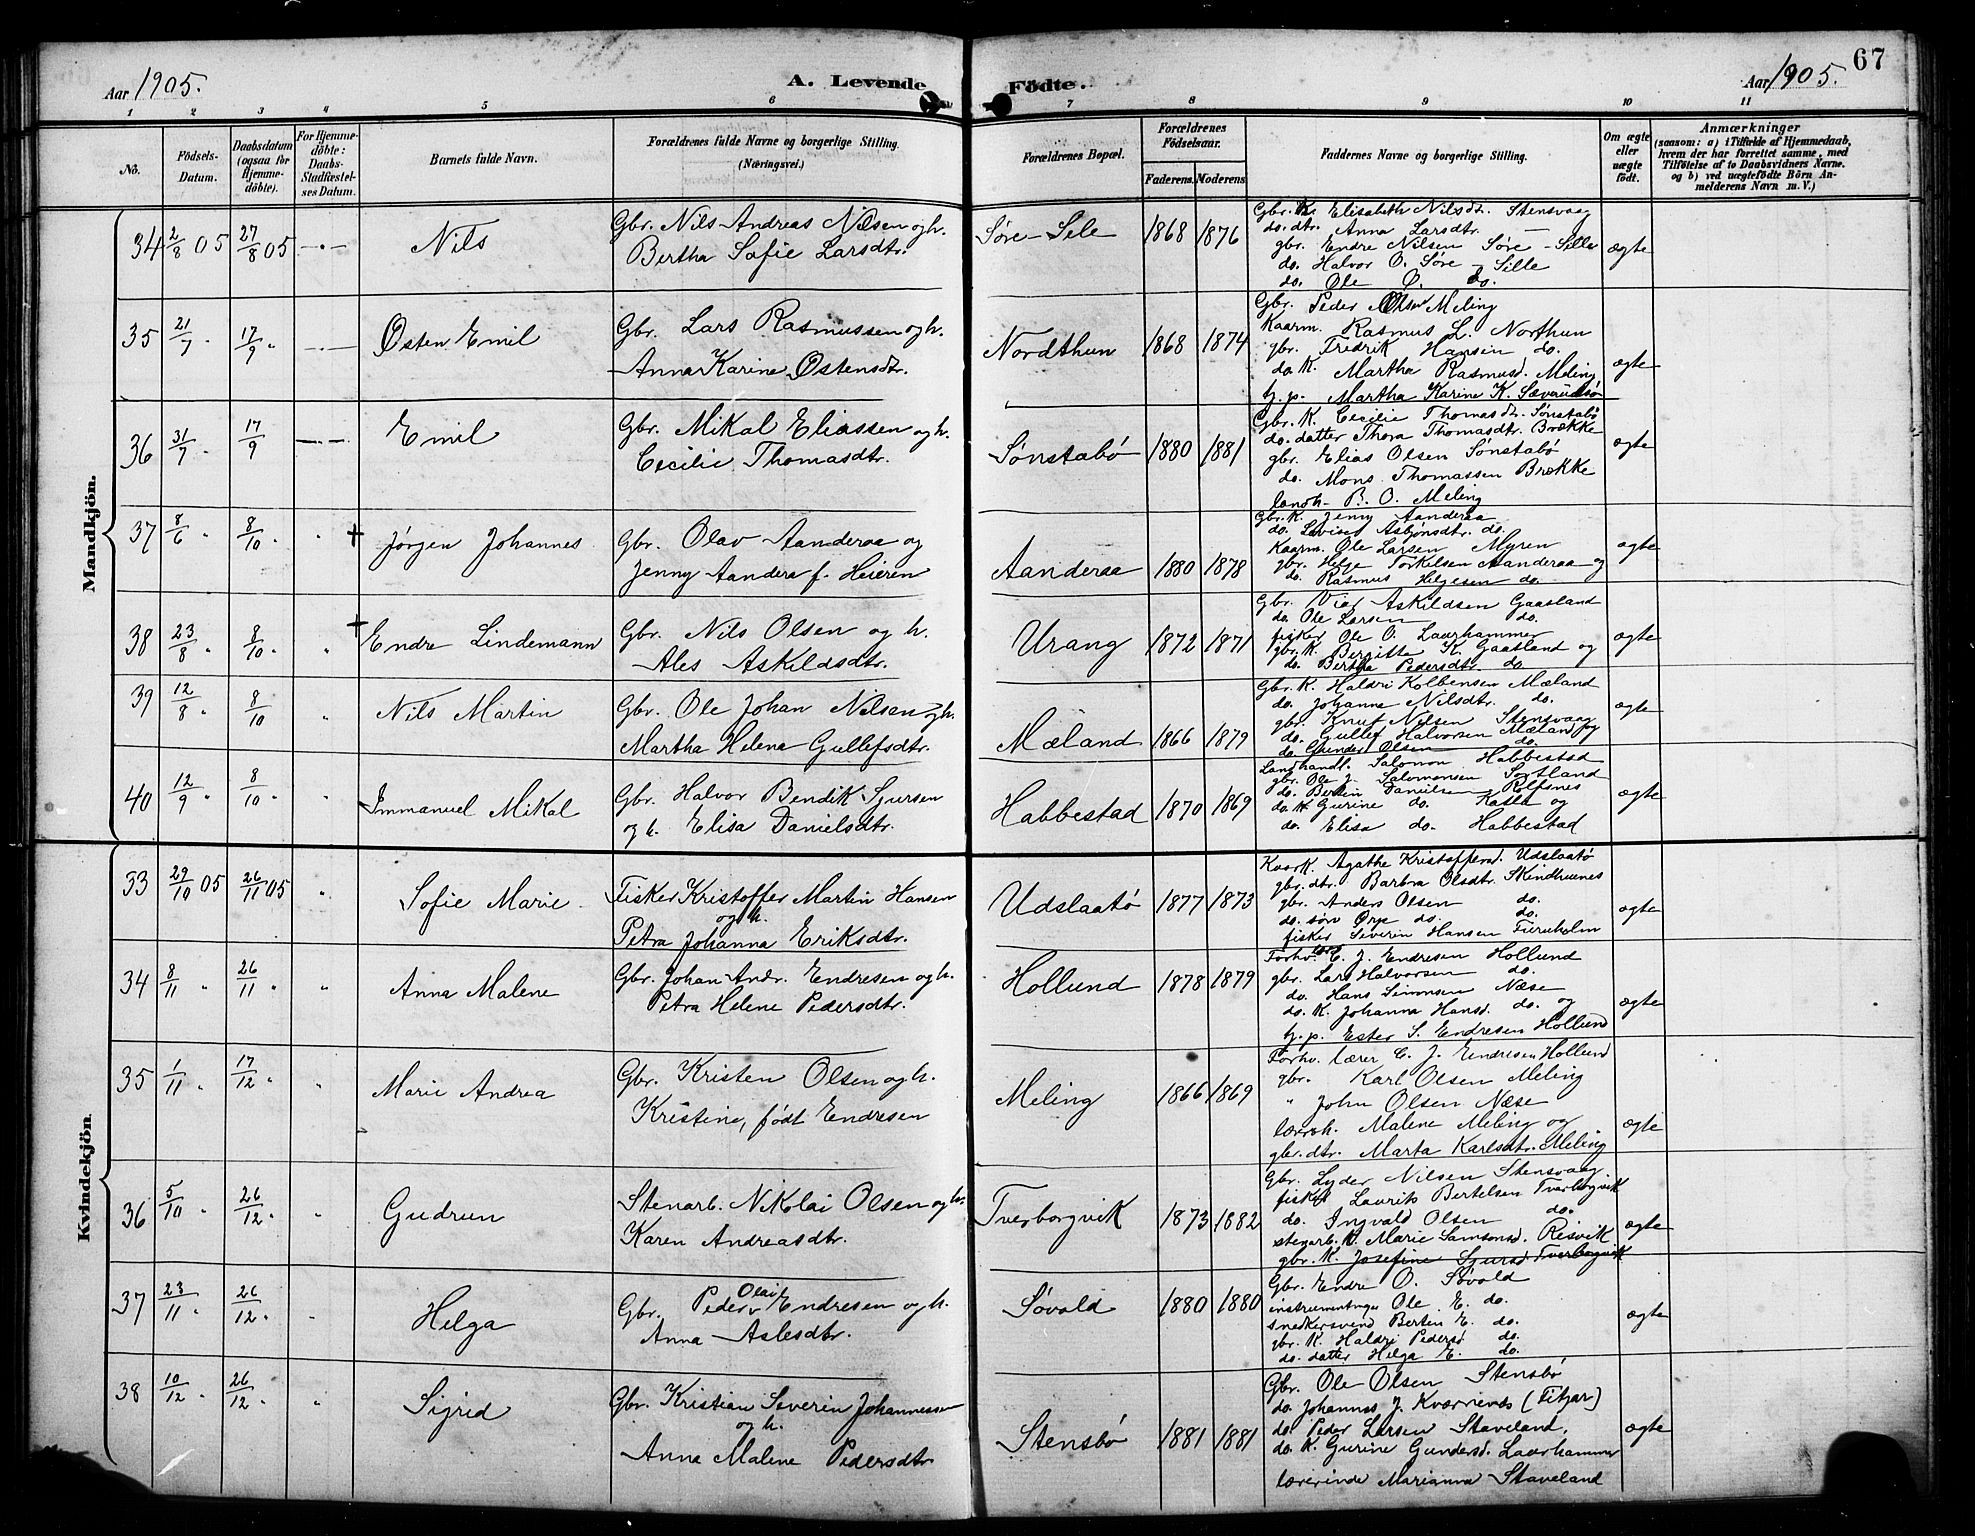 67
Aar 1905. A. Levende Födte. Aar 1905.
1 2 3 4 5 6 7 8 9 10 11
No. Födsels-Datum. Daabsdatum (ogsaa for Hjemme-döbte). For Hjemme-döbte: Daabs-Stadfæstel-ses Datum. Barnets fulde Navn. Forældrenes fulde Navne og borgerlige Stilling. (Næringsvei.) Forældrenes Bopæl. Forældrenes Födselsaar. Faderens. Moderens. Faddernes Navne og borgerlige Stilling. Om ægte eller uægte födt. Anmærkninger (saasom: a) i Tilfælde af Hjemmedaab, hvem der har forrettet samme, med Tilföielse af to Daabsvidners Navne. og b) ved uægtefödte Börn Anmelderens Navn m. V.)
Mandkjön.
34 2/8 05 27/8 05 Nils
Gbr. Nils Andreas Nilsen og h.
Bertha Sofie Larsdtr.
Søre-Sele 1868 1876
Gbr. K. Elisabeth Nilsdt. Stensvaag
do. dtr. Anna Larsdtr. —
gbr. Endre Nilsen Søre-Sille
do. Halvor O. Søre-Sille
do. Ole O. do.
ægte
35 21/7 17/9 Østen Emil
Gbr. Lars Rasmussen og h.
Anna Karine Østensdtr.
Nordthun 1868 1874
Gbr. Peder Olsen Meling
Kaarm. Rasmus L. Northun
gbr. Fredrik Hansen do.
do. K. Martha Rasmusd. Meling
tj. p. Martha Karine K.
ægte
36 31/7 17/9 Emil
Gbr. Mikal Eliassen og h.
Cecilie Thomasdtr.
Sønstabø 1880 1881
Gbr. K. Cecilie Thomasdt. Sønstabø
do. datter Thora Thomasdtr. Brække
gbr. Elias Olsen Sønstabø
do. Mons Thomassen Brekke
B. O. Meling
ægte
37 8/6 8/10 + Jørgen Johannes
Gbr. Olav Aanderaa og
Jenny Aandera f. Heieren
Aanderaa 1880 1878
Gbr. K. Jenny Aanderaa
do. Lovise Asbjønsdtr. do.
Kaarm. Ole Larsen Myren
gbr. Helge Torkelsen Aanderaa og
do. Rasmus Helgesen do.
ægte
38 23/8 8/10 + Endre Lindemann
Gbr. Nils Olsen og h.
Ales Askildsdtr.
Urang 1872 1871
Gbr. Askildsen Gaasland
do. Ole Larsen do.
fisker Ole O. Laurhammer
gbr. K. Bergitte K. Gaasland og
do. Bertha Pedersdtr. do.
ægte
39 12/8 8/10 Nils Martin
Gbr. Ole Johan Nilsen og h.
Martha Helena Gullefsdtr.
Mæland 1866 1879
Gbr. K. Haldri Kolbensen Mæland
do. Johanna Nilsdtr. do.
gbr. Knut Nilsen Stensvaag
do. Gullef Halvorsen Mæland og
do. Gunder Olsen do.
ægte
40 12/9 8/10 Immanuel Mikal
Gbr. Halvor Bendik Sjursen
og h. Elisa Danielsdtr.
Habbestad 1870 1869
Landhandl. Salomon Habbestad
gbr. Ole J. Salomonsen Sortland
do. Bertin Danielsen Rolfsnes
do. K. Gurine do. og
do. Elisa do. Habbestad
ægte
Kvindekjön
33 29/10 05 26/11 05 Sofie Marie
Fisker Kristoffer Martin Hansen
og h.
Petra Johanna Eriksdtr.
Udslaatø 1877 1873
Agathe Kristoffersd. Udslaatø
gbr. dtr. Barbra Olsdtr. Skindhuenes
gbr. Anders Olsen do.
do. søn do. do.
fisker Severin Hansen Furuholm
ægte
34 8/11 26/11 Anna Malene
Gbr. Johan Andr. Endresen og h.
Petra Helene Pedersdtr.
Hollund 1878 1879
Forhv. E. J. Endresen Hollund
gbr. Lars Halvorsen do.
do. Hans Simonsen Næse
do. K. Johanna Hansd. do. og
tj. p. Ester S. Endresen Hollund
ægte
35 1/11 17/12 Marie Andrea
Gbr. Kristen Olsen og h.
Kristine, født Endresen
Meling 1866 1869
Forhv. lærer E. J. Endresen Hollund
gbr. Karl Olsen Meling
" John Olsen Næse
Malene Meling og
gbr. dtr. Marta Karlsdtr. Meling
ægte
36 5/10 26/12 Gudrun
Stenarb. Nikolai Olsen og h.
Karen Andreasdtr.
Tverborgvik 1873 1882
Gbr. Lyder Nilsen Stensvaag
fisker Laurits Bertelsen Tverborgvik
do. Ingvald Olsen do.
stenarb. K. Marie Samsonsd. Risvik
gbr. K. Josefine Sjursd. Tverborgvik
ægte
37 23/11 26/12 Helga
Gbr. Peder Olai Endresen og h.
Anna Aslesdtr.
Søvold 1880 1880
Gbr. Endre O. Søvold
Ole E. do.
snedkersvend Berten E. do.
gbr. K. Haldri Pedersd. do.
do. datter Helga E. do.
ægte
38 10/12 26/12 Sigrid
Gbr. Kristian Severin Johannessen
og h.
Anna Malene Pedersdtr.
Stensbø 1881 1881
Gbr. Ole Olsen Stensbø
do. Johannes J. Kværnenes (Fitjar)
do. Peder Larsen Staveland.
do. K. Gurine Gundersd. Laurhammer
lærerinde Marianna Staveland
ægte